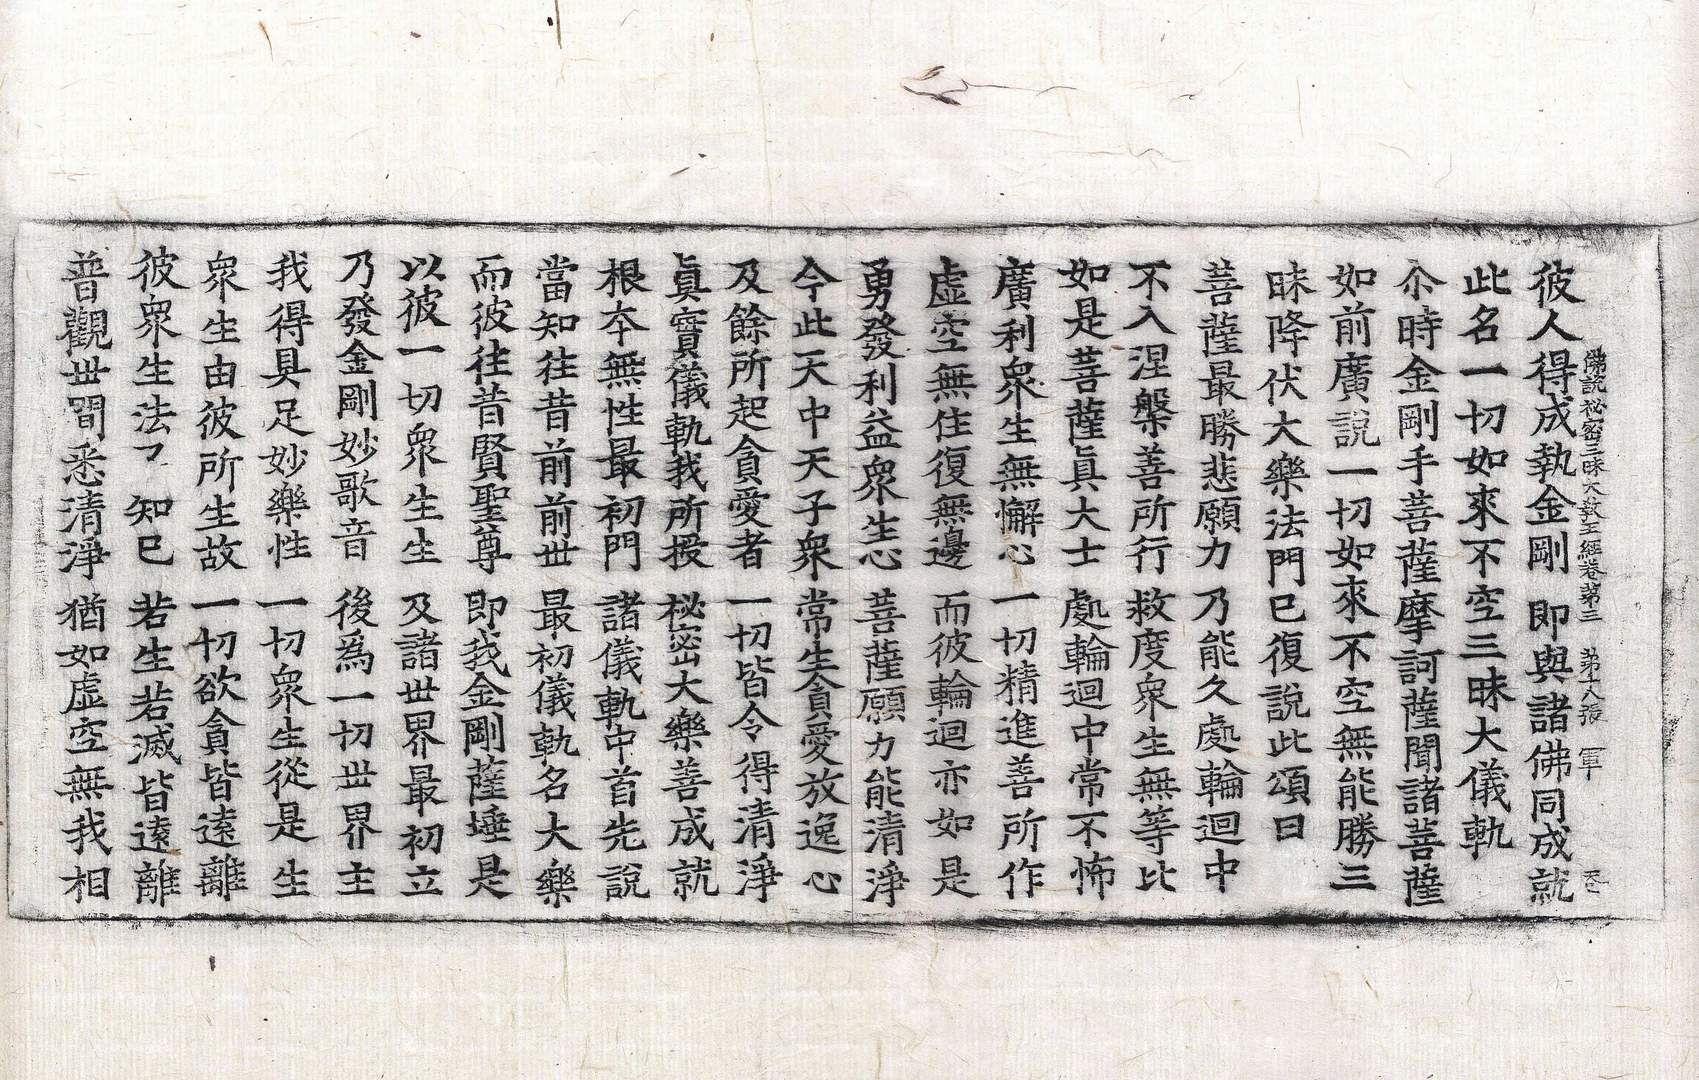 佛説祕密三昧大教王經卷第三　第十八張　軍
彼人得成執金剛　即與諸佛同成就
此名一切如來不空三昧大儀軌
尒時金剛手菩薩摩訶薩聞諸菩薩
如前廣説一切如來不空無能勝三
昧降伏大樂法門已復説此頌曰
菩薩最勝悲願力　乃能久處輪迴中
不入涅槃善所行　救度衆生無等比
如是菩薩眞大士　處輪迴中常不怖
廣利衆生無懈心　一切精進善所作
虚空無住復無邊　而彼輪迴亦如是
勇發利益衆生心　菩薩願力能清淨
今此天中天子衆　常生貪愛放逸心
及餘所起貪愛者　一切皆令得清淨
眞實儀軌我所授　祕密大樂善成就
根夲無性最初門　諸儀軌中首先説
當知往昔前前世　最初儀軌名大樂
而彼往昔賢聖尊　即我金剛薩埵是
以彼一切衆生生　及諸世界最初立
乃發金剛妙歌音　後爲一切世界主
我得具足妙樂性　一切衆生從是生
衆生由彼所生故　一切欲貪皆遠離
彼衆生法了知已　若生若滅皆遠離
普觀世間悉清淨　猶如虚空無我相